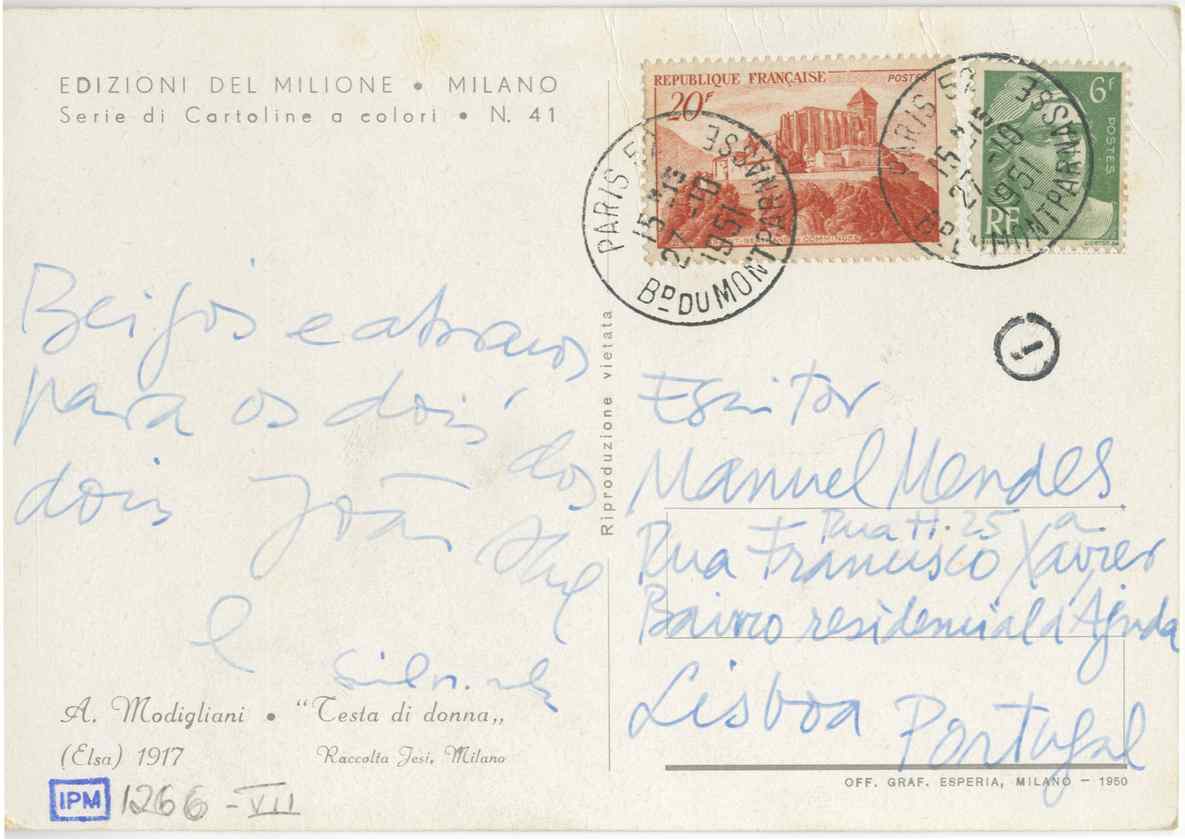 EDIZIONI DEL MILIONE • MILANO
Serie di Cartoline a colori • N. 41
REPUBLIQUE FRANÇAISE POSTES
20F
6F
POSTES
RF
PARIS
15 * -15
27 -10
1951
Bᴰ DU MONTPARNASSE
PARIS
15 * -15
27 -10
1951
Bᴰ DU MONTPARNASSE
Beijos e abraços
para os dois dos
dois João
e
Riproduzione vietata
Escritor
Manuel Mendes
Rua H. 25 a
Rua Francisco Xavier
Bairro residencial d Ajuda
Lisboa Portugal
A. Modigliani • “Testa di donna„
(Elsa) 1917 Raccolta Jesi, Milano
OFF. GRAF. ESPERIA, MILANO — 1950
IPM 1266 - VII